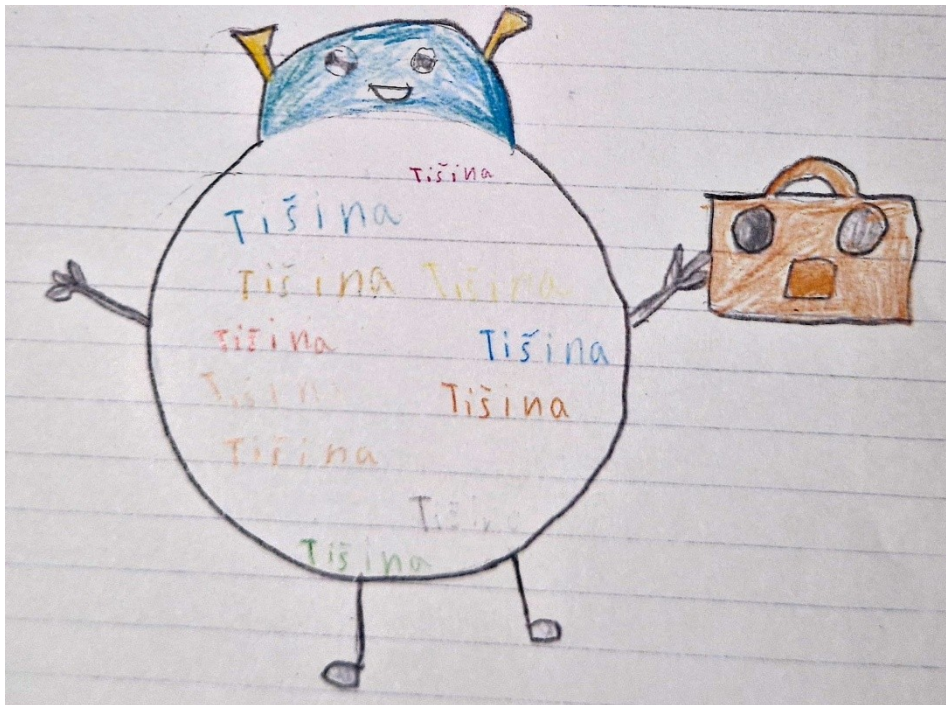 Tišina
Tišina
Tišina Tišina
Tišina
Tišina
Tišina
Tišina
Tišina
Tišina
Tišina